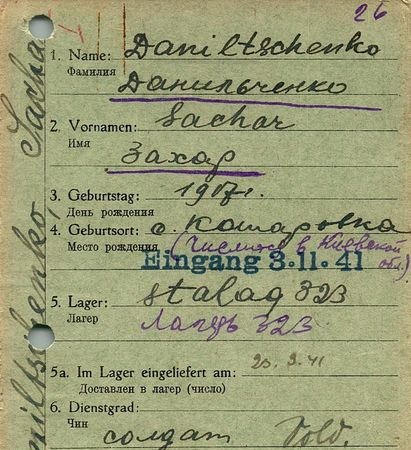 26
1. Name: Daniltschenko
Фамилия Данильченко
2. Vornamen: Sachar
Имя
Захар
3. Geburtstag: 1917г.
День рождения
4. Geburtsort: с. Комаровка
Место рождения (Числится в Киевской обл.)
Eingang 3.11.41
5. Lager: Stalag 323
Лагерь Лагерь 323
5a. Im Lager eingeliefert am:
Доставлен в лагерь (число)
6. Dienstgrad:
Чин солдат Sold.